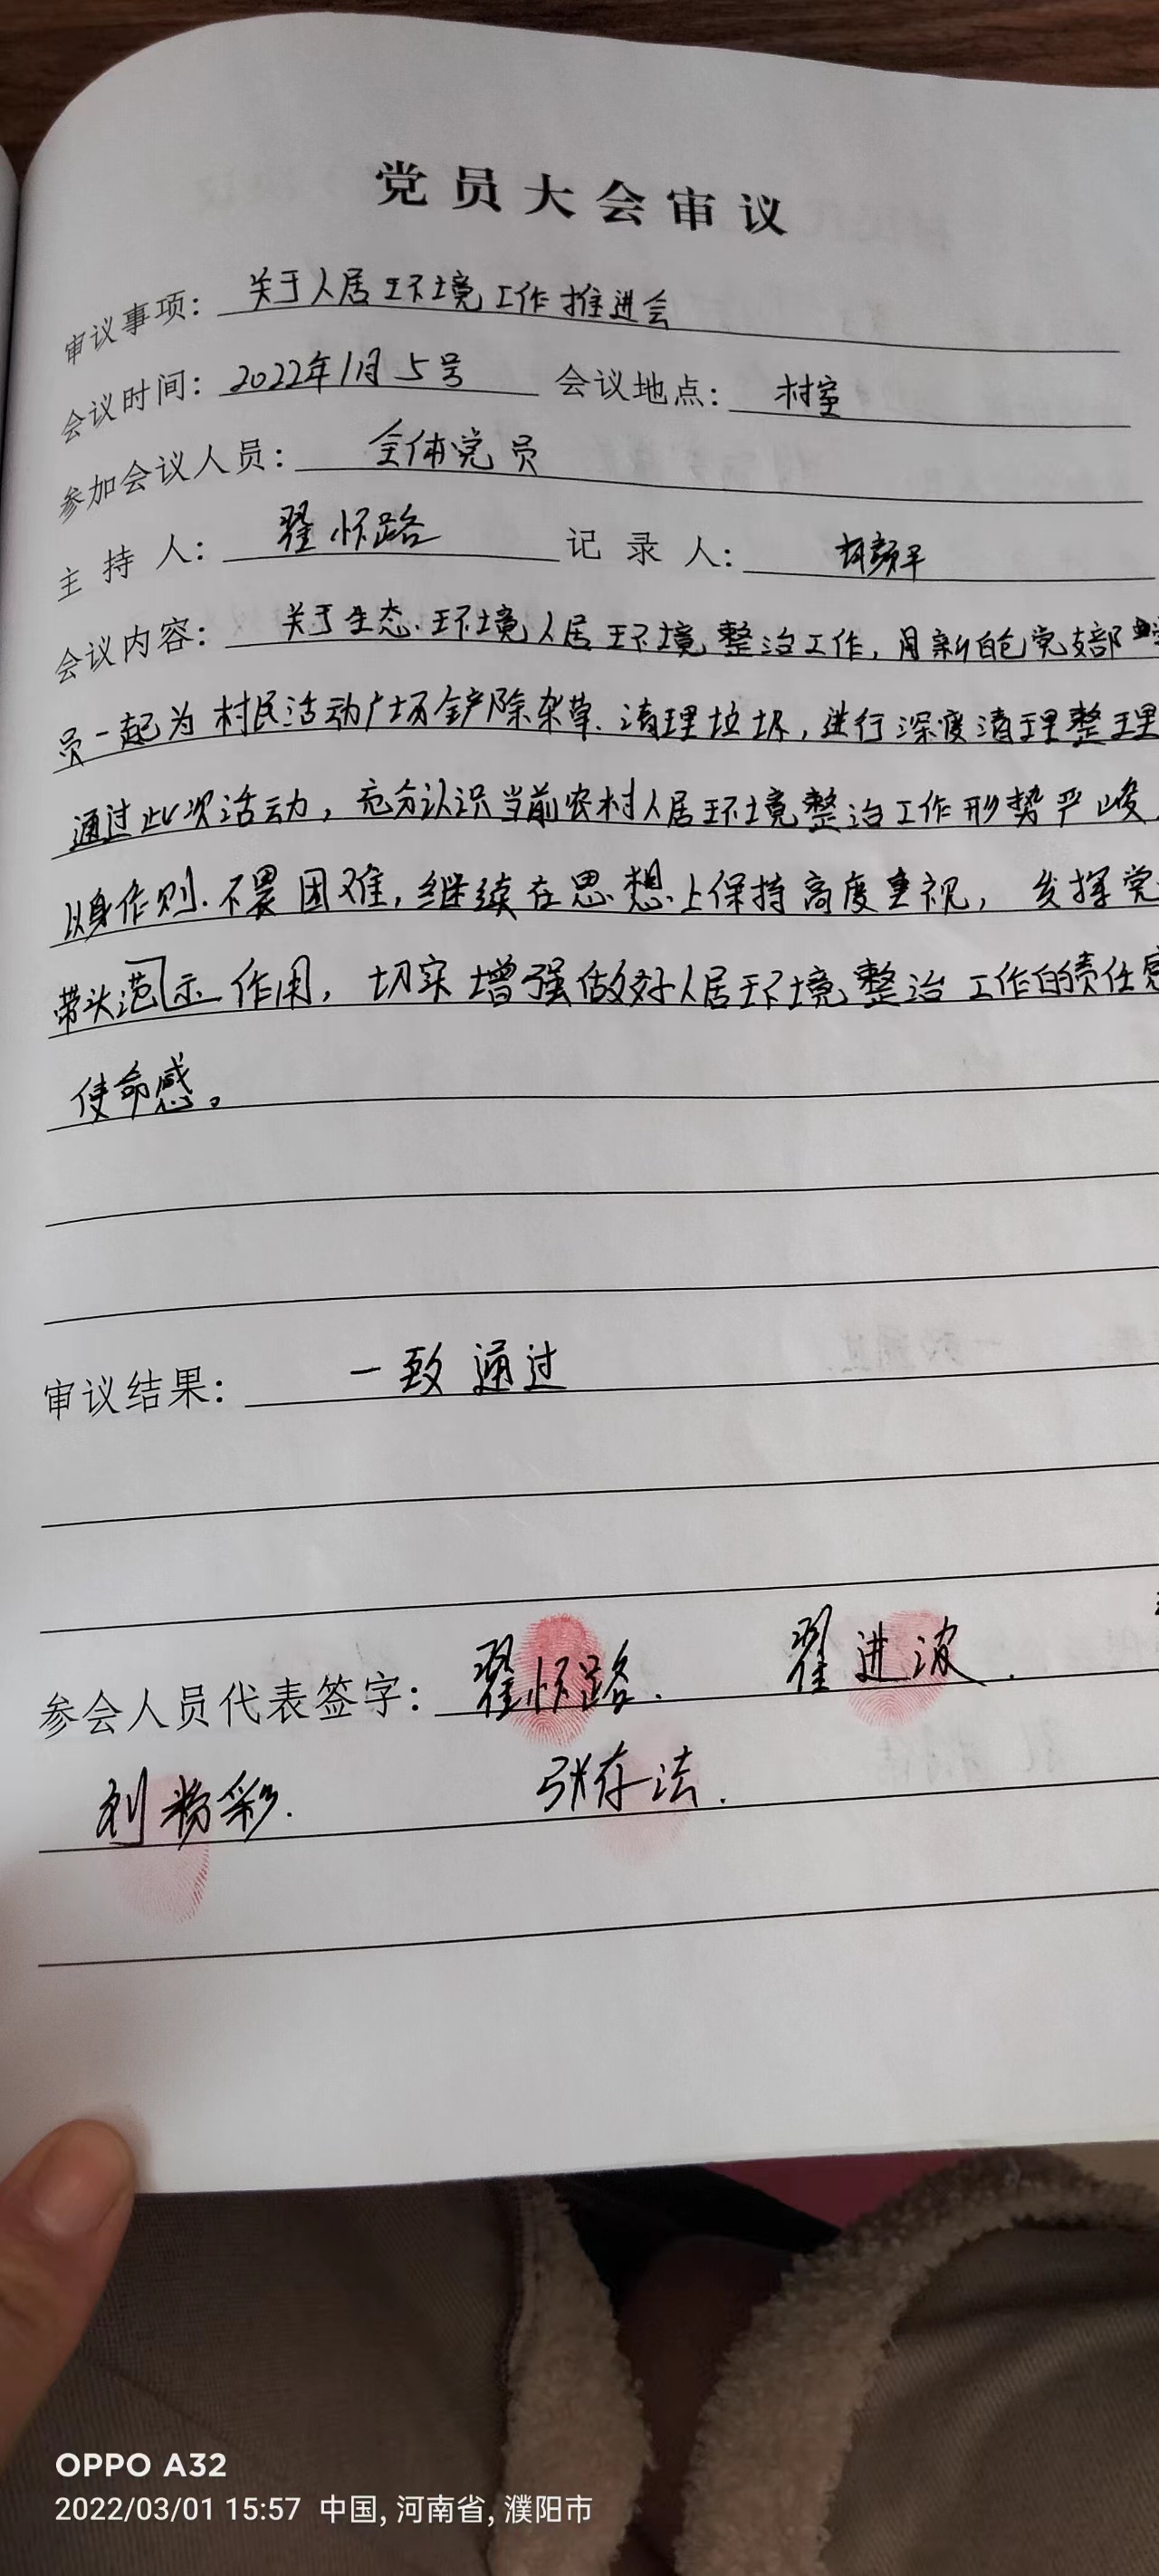 党员大会审议
审议事项: 关于人居环境工作推进会
会议时间: 2022年1月5号 会议地点: 村室
参加会议人员: 全体党员
主持人: 翟怀路 记录人:
会议内容: 关于生态.环境人居环境整治工作,月新的党支部
员一起为村民活动广场铲除杂草.清理垃圾,进行深度清理整理
通过此次活动,充分认识当前农村人居环境整治工作形势严峻
以身作则.不畏困难,继续在思想上保持高度重视,发挥党
带头范示作用,切实增强做好人居环境整治工作的责任感
使命感。
审议结果: 一致通过
参会人员代表签字: 翟怀路. 翟进波.
刘粉彩. 张存法.
OPPO A32
2022/03/01 15:57 中国, 河南省, 濮阳市